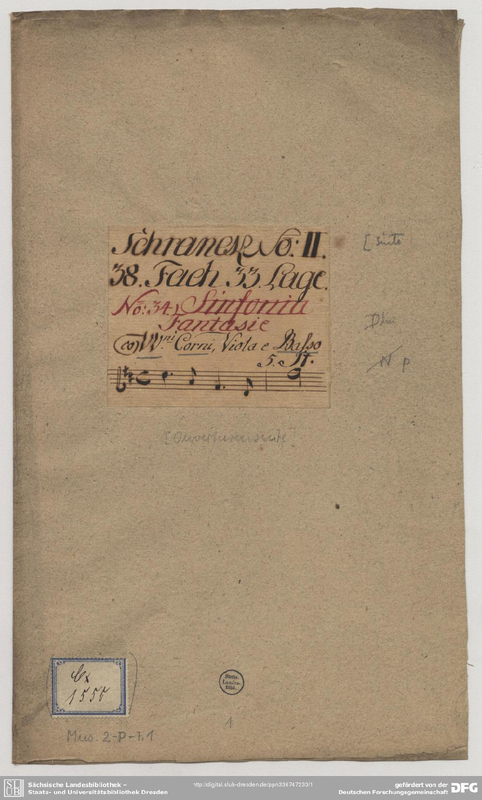 Schranck No: II.
38. Fach 33 Lage.
No: 34) Sinfonia
Fantasie
co VV.ni Corni, Viola e Basso
5. St.
[Suite
p
[Ouvertürensuite]
Cx
1550
Mus. 2-P-1,1
1
Sächsische Landesbibliothek -
Staats- und Universitätsbibliothek Dresden
http://digital.slub-dresden.de/ppn324747233/1
gefördert von der
Deutschen Forschungsgemeinschaft
DFG